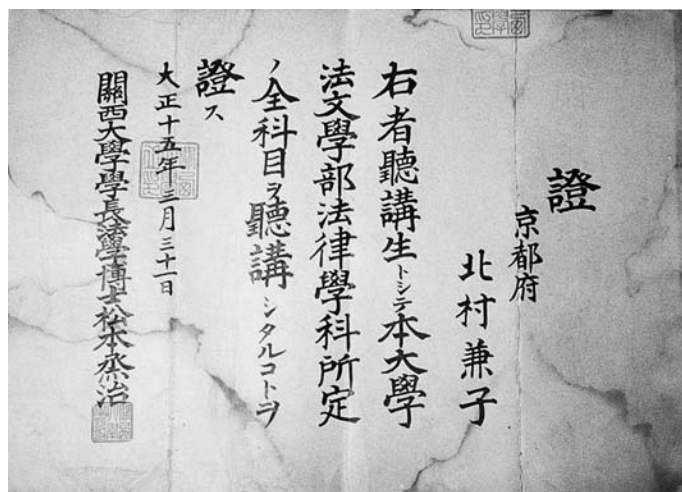 證
京都府
北村兼子
右者聽講生トシテ本大學
法文學部法律學科所定
ノ全科目ヲ聽講シタルコトヲ
證ス
大正十五年三月三十一日
關西大學學長法學博士松本烝治